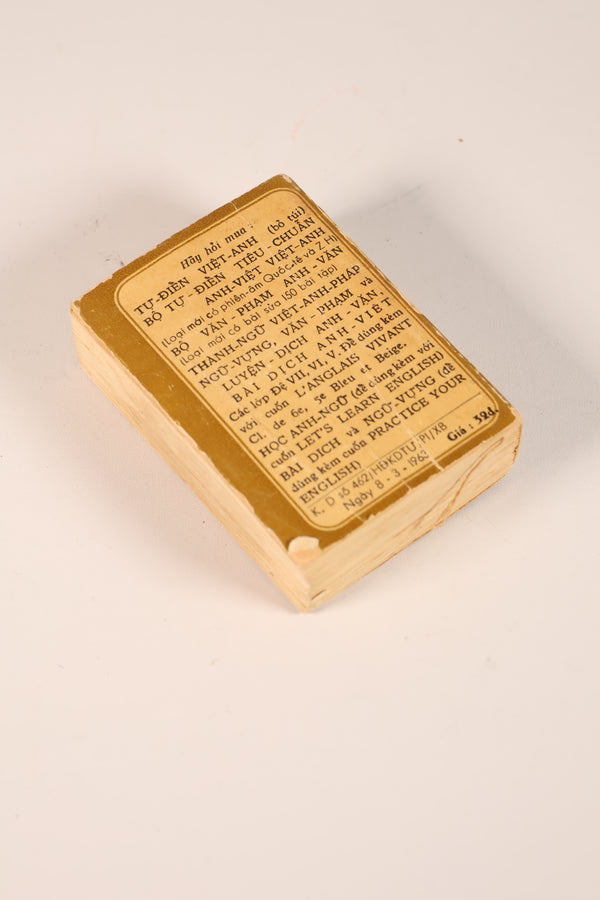 Hãy hỏi mua :
TỰ-ĐIỂN VIỆT-ANH (bỏ túi)
BỘ TỰ-ĐIỂN TIÊU-CHUẨN
ANH-VIỆT VIỆT-ANH
(Loại mới có phiên-âm Quốc-tế và Z H)
BỘ VĂN PHẠM ANH-VĂN
(Loại mới có bài sửa 150 bài tập)
THÀNH-NGỮ VIỆT-ANH-PHÁP
NGỮ-VỰNG, VĂN-PHẠM và
LUYỆN-DỊCH ANH-VĂN
BÀI DỊCH ANH-VIỆT
Các lớp Đệ VII, VI, V. Đề dùng kèm
với cuốn L'ANGLAIS VIVANT
Cl. de 6e, 5e Bleu et Beige.
HỌC ANH-NGỮ (đề dùng kèm với
cuốn LET'S LEARN ENGLISH)
BÀI DỊCH và NGỮ-VỰNG (đề
dùng kèm cuốn PRACTICE YOUR
ENGLISH)
K. D số 462/HĐKDTƯ/PI/XB
Ngày 8-3-1963
Giá : 32đ.